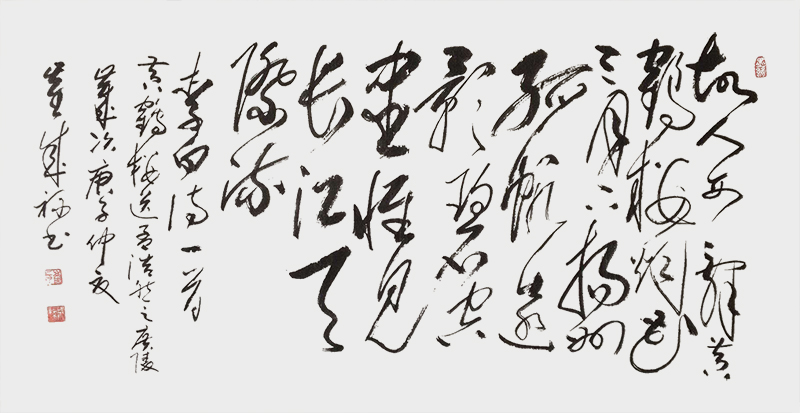 故人西辭黃
鶴樓烟花
三月下揚州
孤帆遠
影碧空
盡惟見
長江天
際流
李白詩一首
黃鶴樓送孟浩然之廣陵
歲次庚子仲夏
董成書